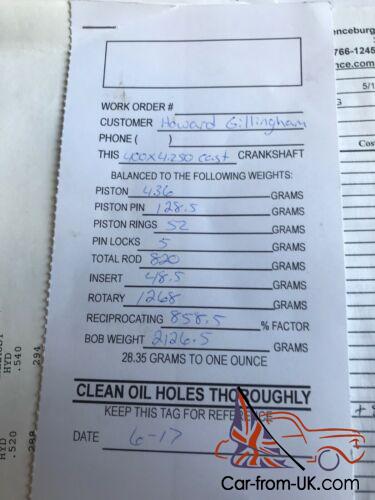 WORK ORDER #
CUSTOMER Howard Gillingham
PHONE ( )
THIS 400x4.250 cast CRANKSHAFT
BALANCED TO THE FOLLOWING WEIGHTS:
PISTON 436 GRAMS
PISTON PIN 128.5 GRAMS
PISTON RINGS 52 GRAMS
PIN LOCKS 5 GRAMS
TOTAL ROD 820 GRAMS
INSERT 48.5 GRAMS
ROTARY 1268 GRAMS
RECIPROCATING 858.5 % FACTOR
BOB WEIGHT 2126.5 GRAMS
28.35 GRAMS TO ONE OUNCE
CLEAN OIL HOLES THOROUGHLY
KEEP THIS TAG FOR REFERENCE
DATE 6-17
enceburg
766-1245
nce.com
5/1
G
Cos
HYD
.540
294
HYD
.520
289
Car-from-UK.com